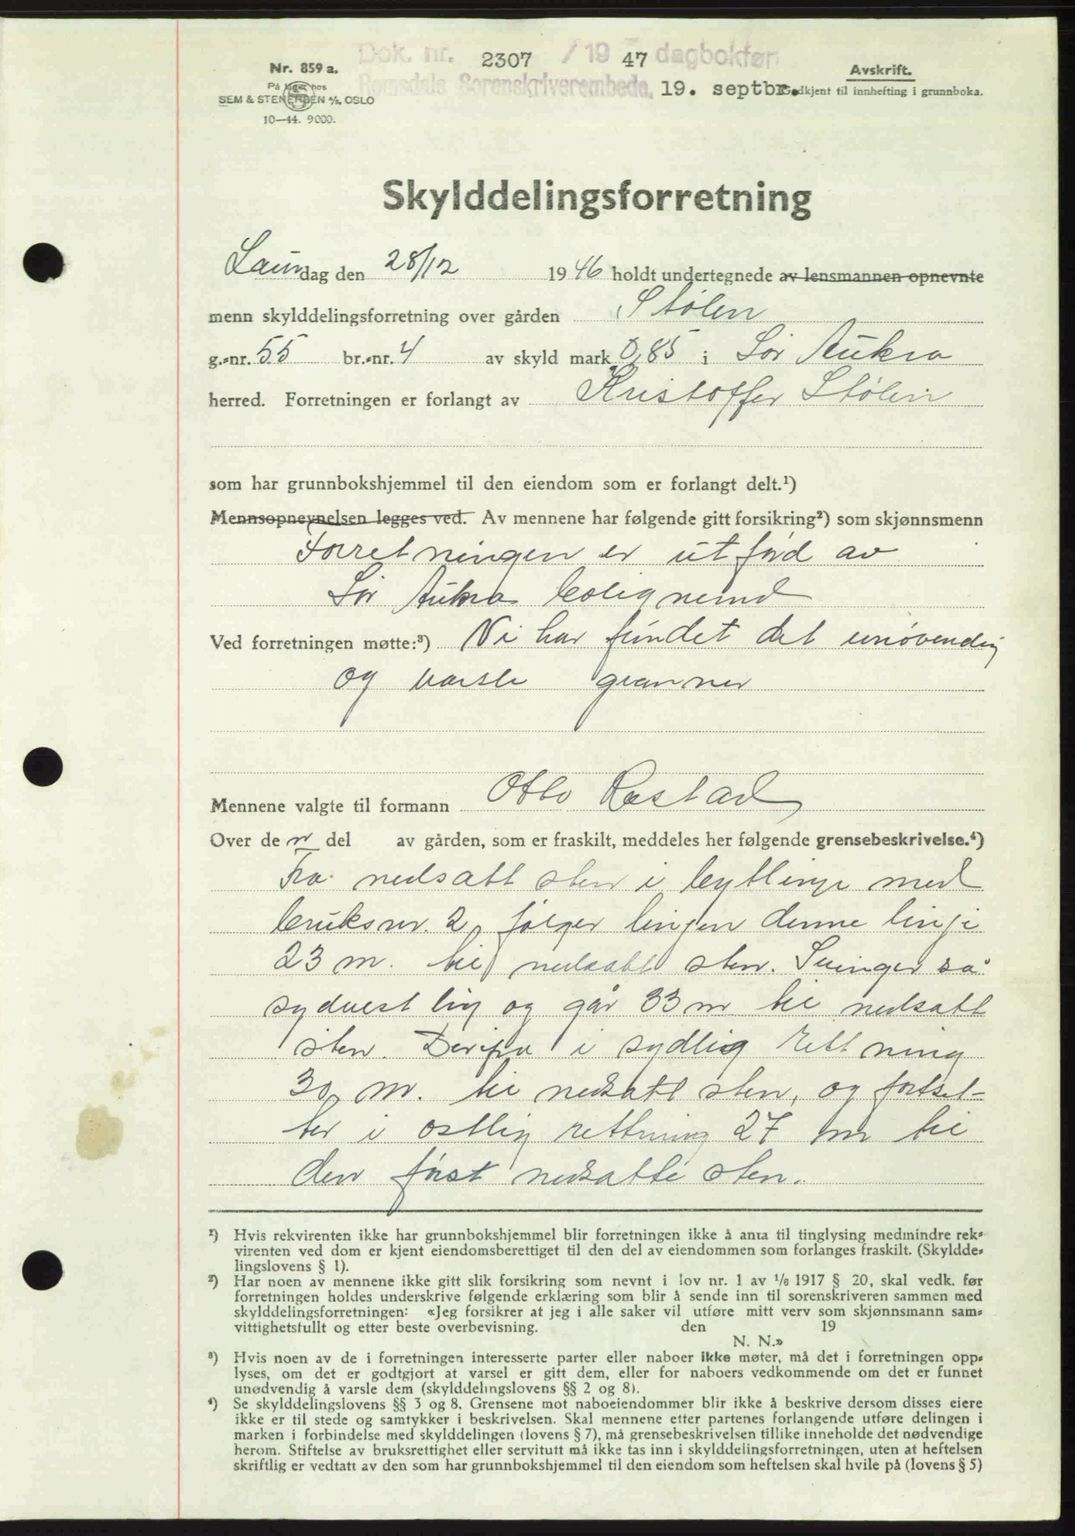 Dok. nr. 2307 / 19 47 dagbokfør
Romsdals Sorenskriverembede, 19. septbr.
Nr. 859 a.
På lager hos
SEM & STENERSEN A/S, OSLO
10—44. 9000.
Avskrift.
Godkjent til innhefting i grunnboka.
Skylddelingsforretning
Laurdag den 28/12 1946 holdt undertegnede av lensmannen opnevnte
menn skylddelingsforretning over gården Stølen
g.-nr. 55 br.-nr. 4 av skyld mark 0,85 i Sør Aukra
herred. Forretningen er forlangt av Kristoffer Stølen
som har grunnbokshjemmel til den eiendom som er forlangt delt.¹)
Mennsopnevnelsen legges ved. Av mennene har følgende gitt forsikring²) som skjønnsmenn
Forretningen er utførd av
Sør Aukra bolignemd
Ved forretningen møtte:³) Vi har fundet det unøvendig
og varsle granner
Mennene valgte til formann Otto Rastad
Over den del av gården, som er fraskilt, meddeles her følgende grensebeskrivelse.⁴)
Fra nedsatt sten i bytlinje med
bruksnr. 2, følger lingen denne linje
23 m. til nedsatt sten. Svinger så
sydvestlig og går 33 m til nedsatt
sten. Derifra i sydlig rettning
30 m. til nedsatt sten, og fortset-
ter i østlig rettning 27 m til
den først nedsatte sten.
¹) Hvis rekvirenten ikke har grunnbokshjemmel blir forretningen ikke å anta til tinglysing medmindre rek-
virenten ved dom er kjent eiendomsberettiget til den del av eiendommen som forlanges fraskilt. (Skyldde-
lingslovens § 1).
²) Har noen av mennene ikke gitt slik forsikring som nevnt i lov nr. 1 av 1/6 1917 § 20, skal vedk. før
forretningen holdes underskrive følgende erklæring som blir å sende inn til sorenskriveren sammen med
skylddelingsforretningen: «Jeg forsikrer at jeg i alle saker vil utføre mitt verv som skjønnsmann sam-
vittighetsfullt og etter beste overbevisning. den 19
N. N.»
³) Hvis noen av de i forretningen interesserte parter eller naboer ikke møter, må det i forretningen opp-
lyses, om det er godtgjort at varsel er gitt dem, eller for naboers vedkommende om det er funnet
unødvendig å varsle dem (skylddelingslovens §§ 2 og 8).
⁴) Se skylddelingslovens §§ 3 og 8. Grensene mot naboeiendommer blir ikke å beskrive dersom disses eiere
ikke er til stede og samtykker i beskrivelsen. Skal mennene etter partenes forlangende utføre delingen i
marken i forbindelse med skylddelingen (lovens § 7), må grensebeskrivelsen tillike inneholde det nødvendige
herom. Stiftelse av bruksrettighet eller servitutt må ikke tas inn i skylddelingsforretningen, uten at heftelsen
skriftlig er vedtatt av den som har grunnbokshjemmel til den eiendom som heftelsen skal hvile på (lovens § 5)